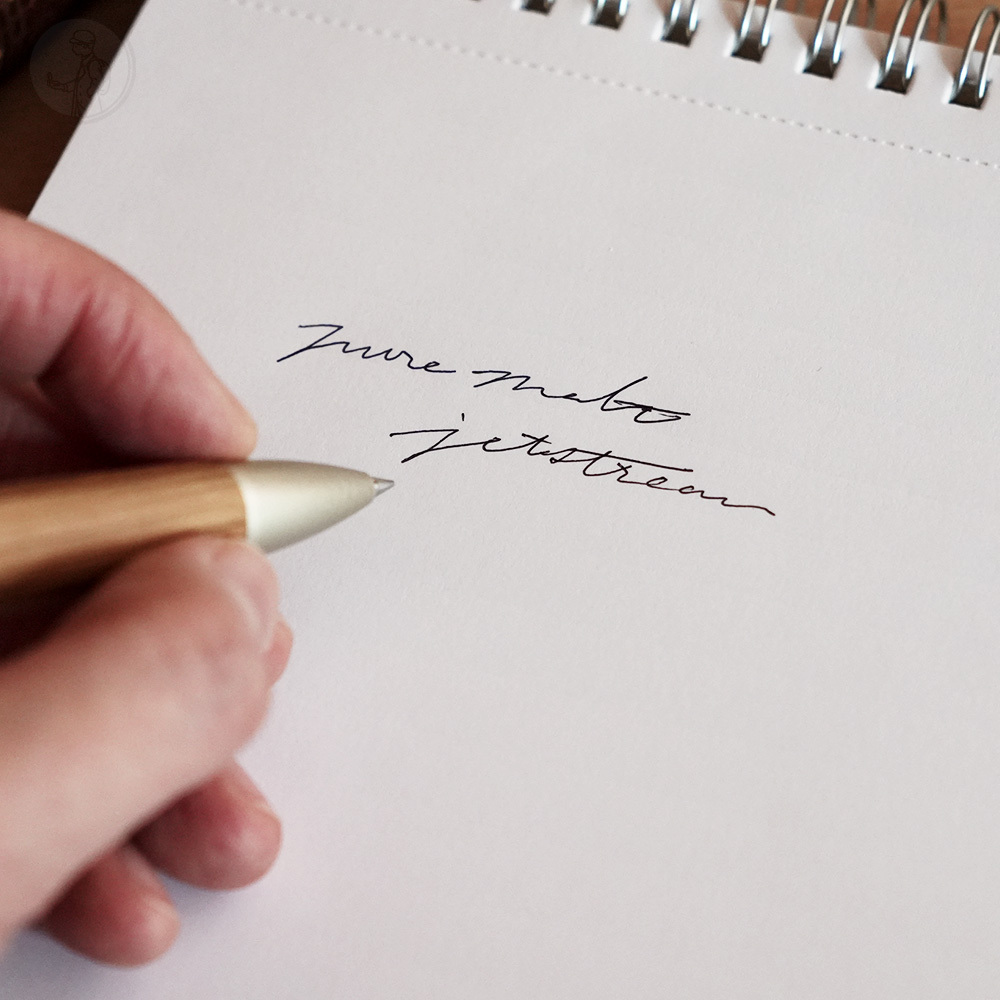 pure malt
jetstream